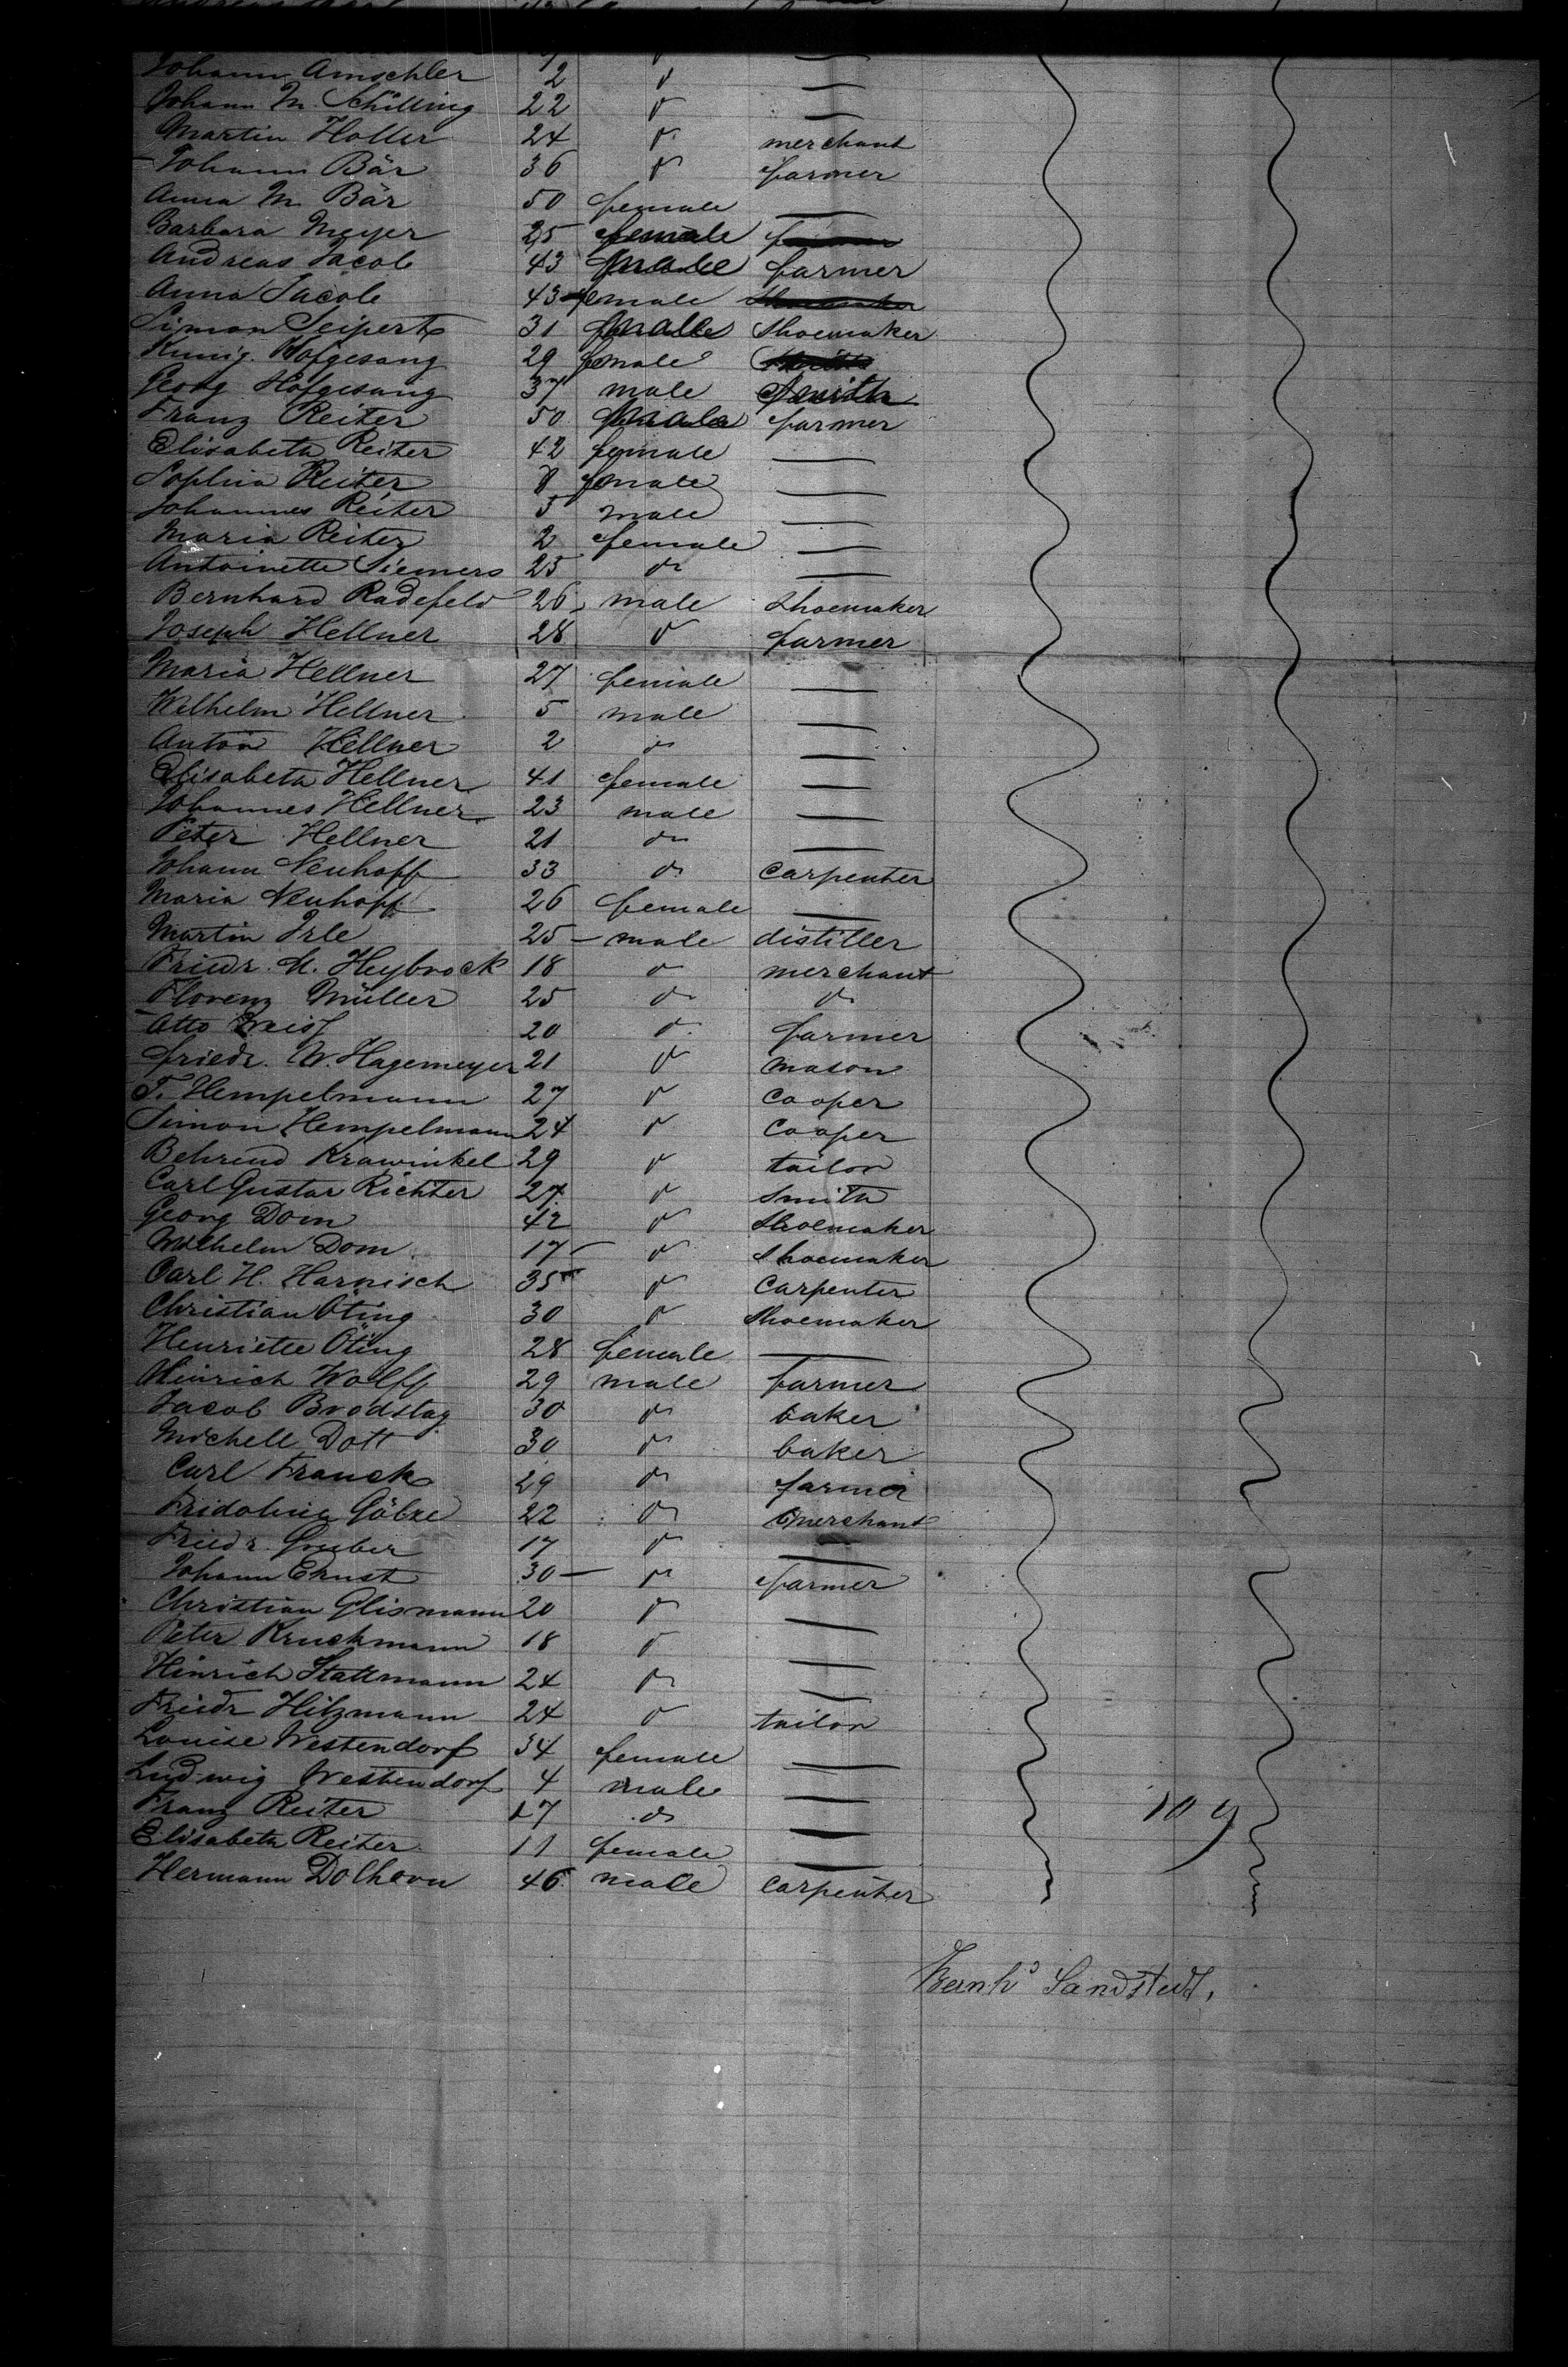 Johann Amschler 2 do —
Johann M. Schilling 22 do —
Martin Holler 24 do merchant
Johann Bär 36 do farmer
Anna M Bär 50 female —
Barbara Meyer 25 female
Andreas Jacob 43 male farmer
Anna Jacob 43 female
Simon Seipert 31 male Shoemaker
Kunig. Hofgesang 29 female
Georg Hofgesang 37 male Smith
Franz Reiter 50 male farmer
Elisabeth Reiter 42 female —
Sophia Reiter 8 female —
Johannes Reiter 5 male —
Maria Reiter 2 female —
Antoinette Siemers 25 do —
Bernhard Radefeld 26 male Shoemaker
Joseph Hellner 28 do farmer
Maria Hellner 27 female —
Wilhelm Hellner 5 male —
Anton Hellner 2 do —
Elisabeth Hellner 41 female —
Johannes Hellner 23 male —
Peter Hellner 21 do —
Johann Neuhoff 33 do carpenter
Maria Neuhoff 26 female —
Martin Irle 25 — male distiller
Friedr. M. Heybrock 18 do merchant
Florenz Müller 25 do do
Otto 20 do farmer
Friedr. W. Hagemeyer 21 do mason
F. Hempelmann 27 do Cooper
Simon Hempelmann 24 do Cooper
Behrend Krawinkel 29 do tailor
Carl Gustav Richter 27 do Smith
Georg Dom 42 do Shoemaker
Wilhelm Dom 17 — do Shoemaker
Carl H. Harnisch 35 do Carpenter
Christian Öting 30 do Shoemaker
Henriette Öting 28 female —
Hinrich Wolff 29 male farmer
Jacob Brodstag 30 do baker
Michell Dott 30 do baker
Carl Franck 29 do farmer
Fridolin Göbze 22 do merchant
Friedr. Gruber 17 do —
Johann Ernst 30 — do farmer
Christian Glismann 20 do —
Peter Kruckmann 18 do —
Hinrich Stattmann 24 do —
Friedr Hitzmann 24 do tailor
Louise Westendorf 34 female —
Ludwig Westendorf 4 male —
Franz Reiter 17 do —
109
Elisabeth Reiter 11 female —
Hermann Dolhorn 46 male carpenter
Bernhd Sandstedt.